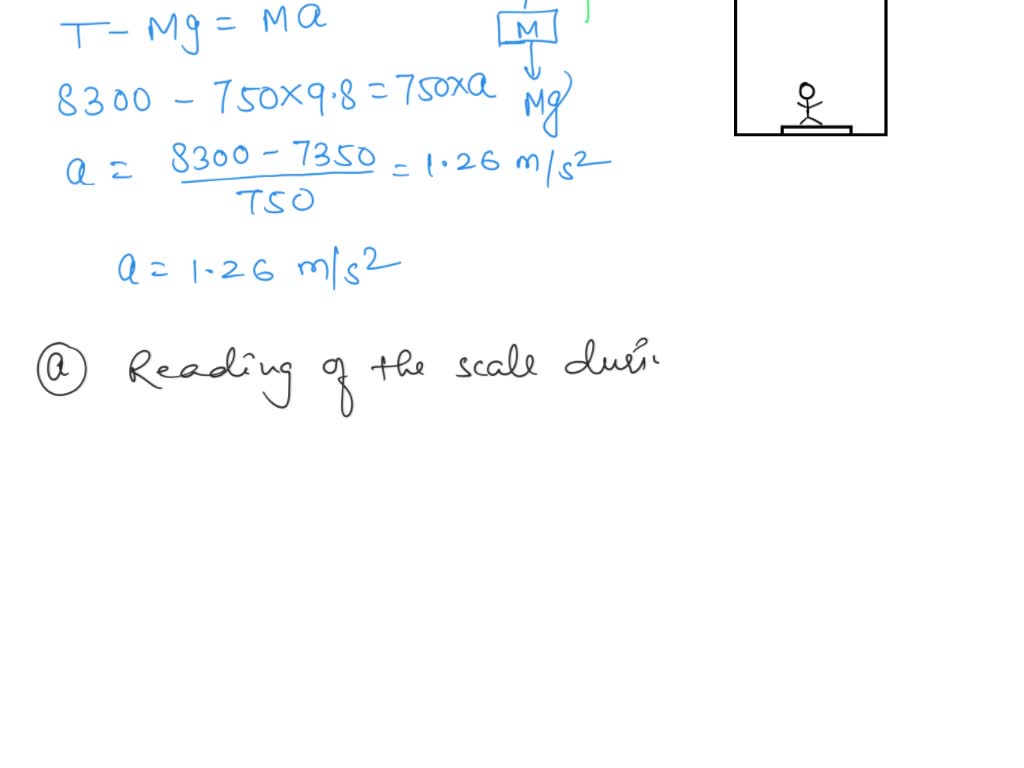 T - Mg = Ma
M
8300 - 750×9.8 = 750×a
Mg
a = 8300 - 7350 / 750 = 1.26 m/s²
a = 1.26 m/s²
ⓐ Reading of the scale duri